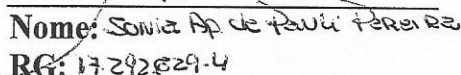 Nome: Sonia Ap. de Pauli Pereira
RG: 17.292.829-4